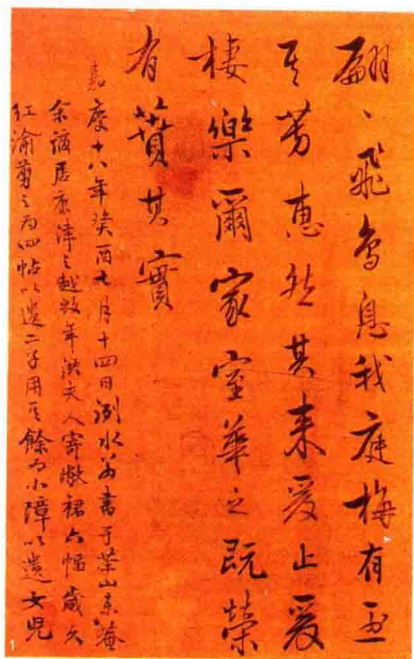 翩〻飛鳥息我庭梅有烈
其芳惠然其來爰止爰
棲樂爾家室華之既榮
有蕡其實
嘉慶十八年癸酉七月十四日洌水翁書于茶山東菴
余謫居康津之越數年洪夫人寄敝裙六幅歲久
紅渝剪之为四帖以遺二子用其餘为小障以遺女兒
1